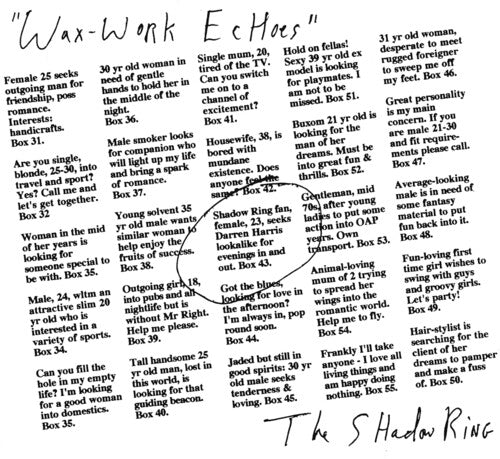 "Wax-Work Echoes"
Female 25 seeks
outgoing man for
friendship, poss
romance.
Interests:
handicrafts.
Box 31.
Are you single,
blonde, 25-30, into
travel and sport?
Yes? Call me and
let's get together.
Box 32
Woman in the mid
of her years is
looking for
someone special to
be with. Box 35.
Male, 24, wltm an
attractive slim 20
yr old who is
interested in a
variety of sports.
Box 34.
Can you fill the
hole in my empty
life? I'm looking
for a good woman
into domestics.
Box 35.
30 yr old woman in
need of gentle
hands to hold her in
the middle of the
night.
Box 36.
Male smoker looks
for companion who
will light up my life
and bring a spark
of romance.
Box 37.
Young solvent 35
yr old male wants
similar woman to
help enjoy the
fruits of success.
Box 38.
Outgoing girl, 18,
into pubs and all
nightlife but is
without Mr Right.
Help me please.
Box 39.
Tall handsome 25
yr old man, lost in
this world, is
looking for that
guiding beacon.
Box 40.
Single mum, 20,
tired of the TV.
Can you switch
me on to a
channel of
excitement?
Box 41.
Housewife, 38, is
bored with
mundane
existence. Does
anyone feel the
same? Box 42.
Shadow Ring fan,
female, 23, seeks
Darren Harris
lookalike for
evenings in and
out. Box 43.
Got the blues,
looking for love in
the afternoon?
I'm always in, pop
round soon.
Box 44.
Jaded but still in
good spirits: 30 yr
old male seeks
tenderness &
loving. Box 45.
Hold on fellas!
Sexy 39 yr old ex
model is looking
for playmates. I
am not to be
missed. Box 51.
Buxom 21 yr old is
looking for the
man of her
dreams. Must be
into great fun &
thrills. Box 52.
Gentleman, mid
70s, after young
ladies to put some
action into OAP
years. Own
transport. Box 53.
Animal-loving
mum of 2 trying
to spread her
wings into the
romantic world.
Help me to fly.
Box 54.
Frankly I'll take
anyone - I love all
living things and
am happy doing
nothing. Box 55.
31 yr old woman,
desperate to meet
rugged foreigner
to sweep me off
my feet. Box 46.
Great personality
is my main
concern. If you
are male 21-30
and fit require-
ments please call.
Box 47.
Average-looking
male is in need of
some fantasy
material to put
fun back into it.
Box 48.
Fun-loving first
time girl wishes to
swing with guys
and groovy girls.
Let's party!
Box 49.
Hair-stylist is
searching for the
client of her
dreams to pamper
and make a fuss
of. Box 50.
The Shadow Ring